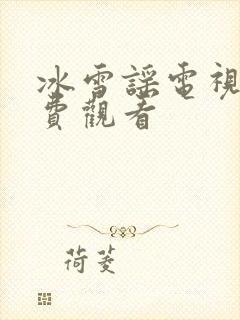 冰雪謠電視
費觀看
荷菱